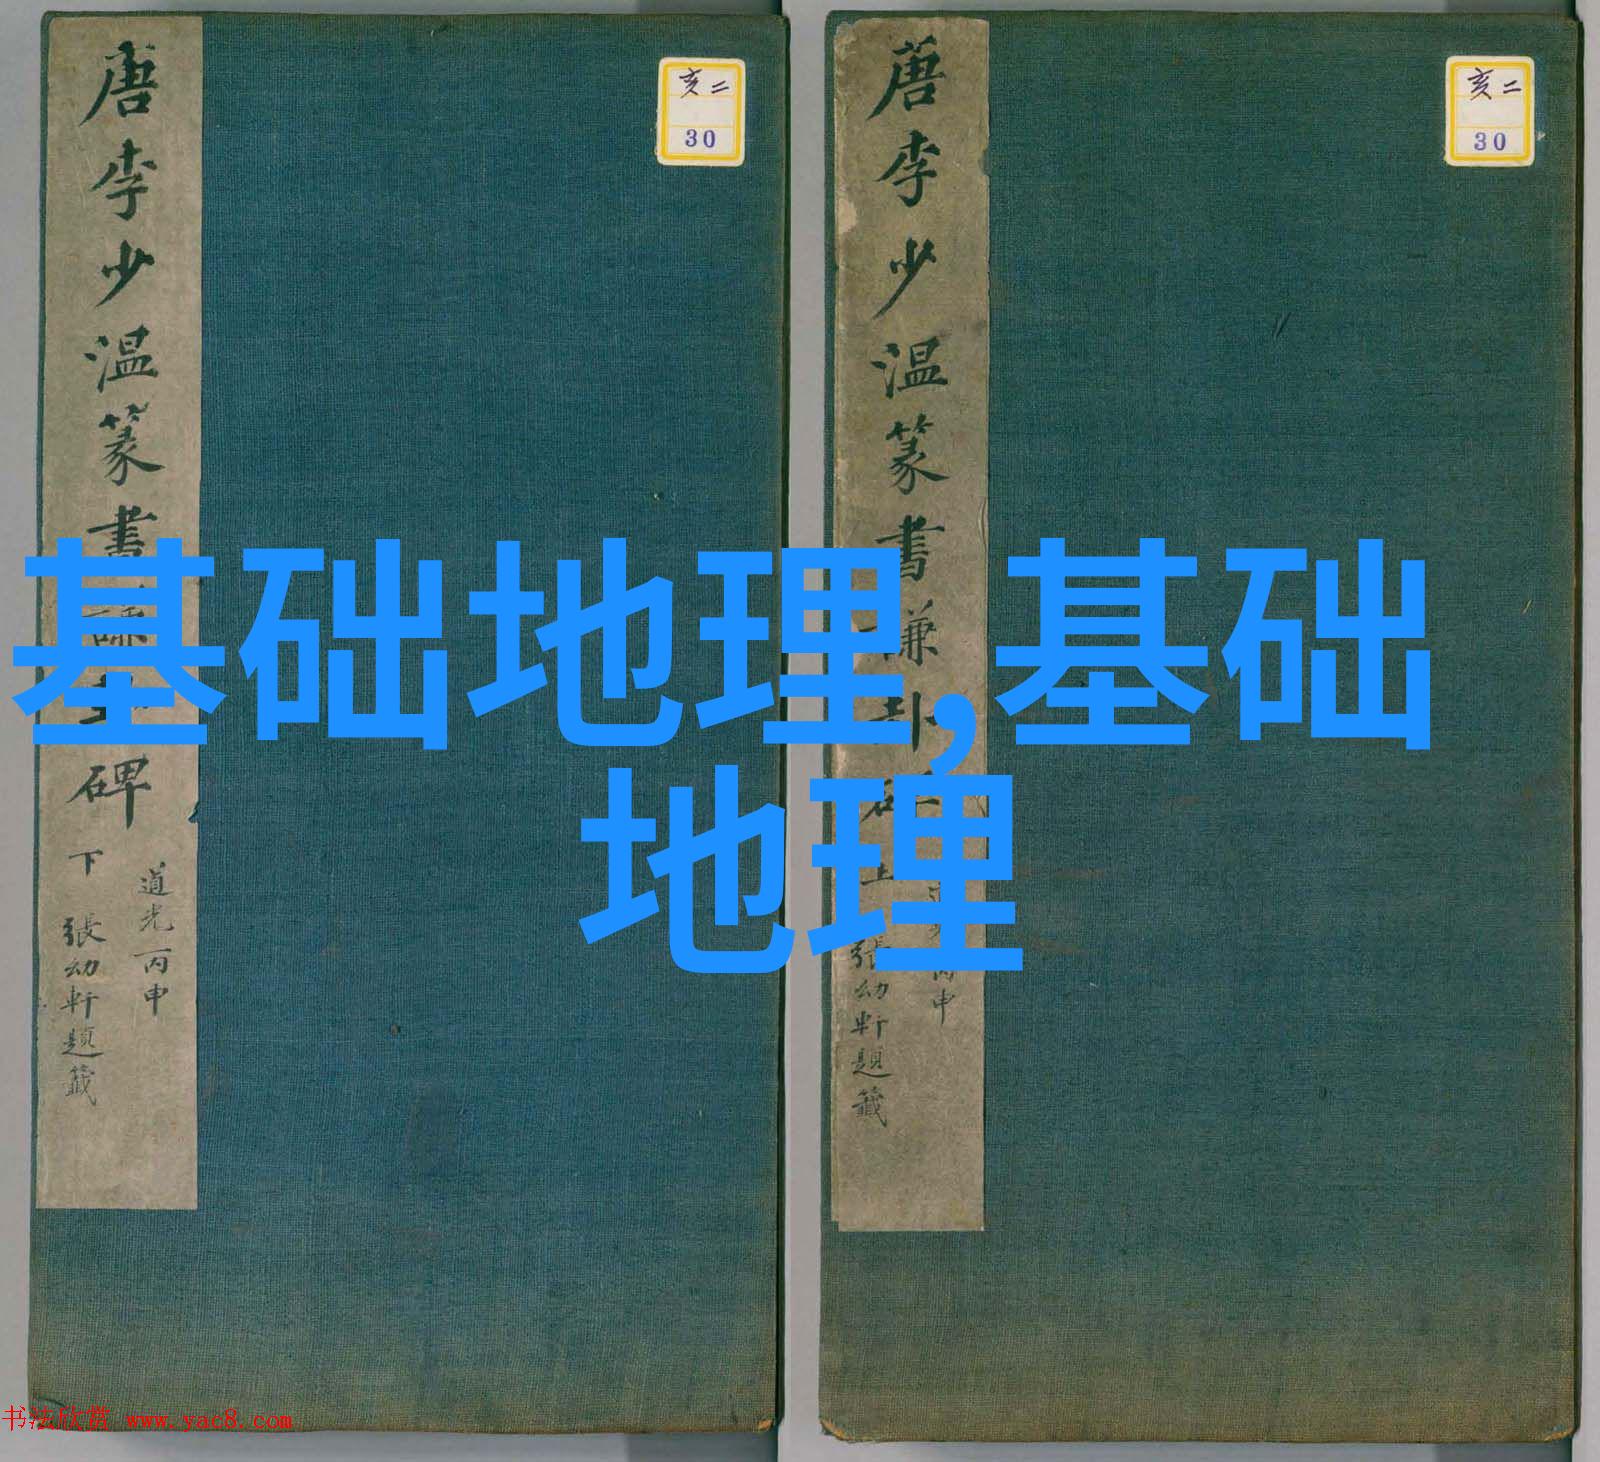 唐李少温篆書謙卦碑
下
道光丙申
張幼軒題籤
亥二
30
唐李少温篆書謙卦碑
上
丙申
張幼軒題籤
亥二
30
基础地理,基础
地理
书法欣赏 www.yac8.com